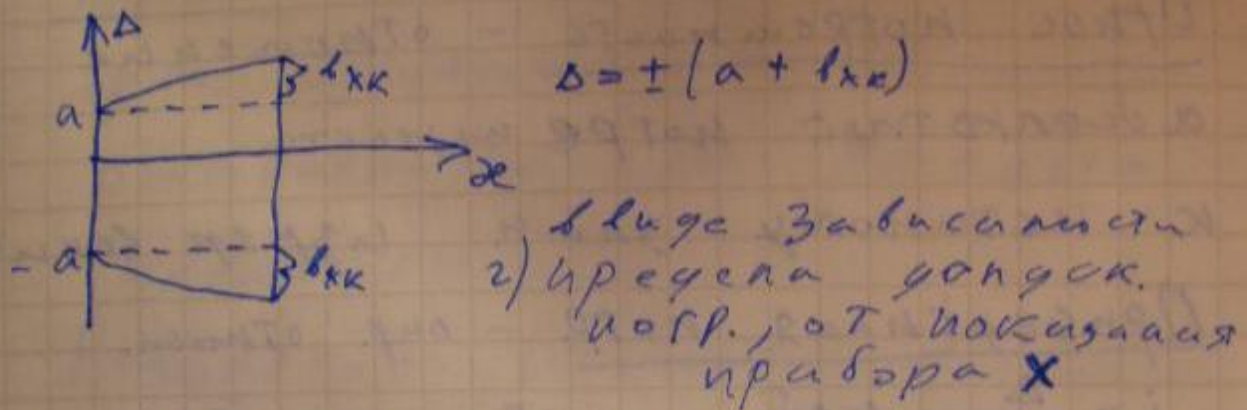 Δ
a
вхк
Δ = ± (a + вхк)
x
- a
вхк
в виде зависимости
г) предела допуск.
погр., от показания
прибора X